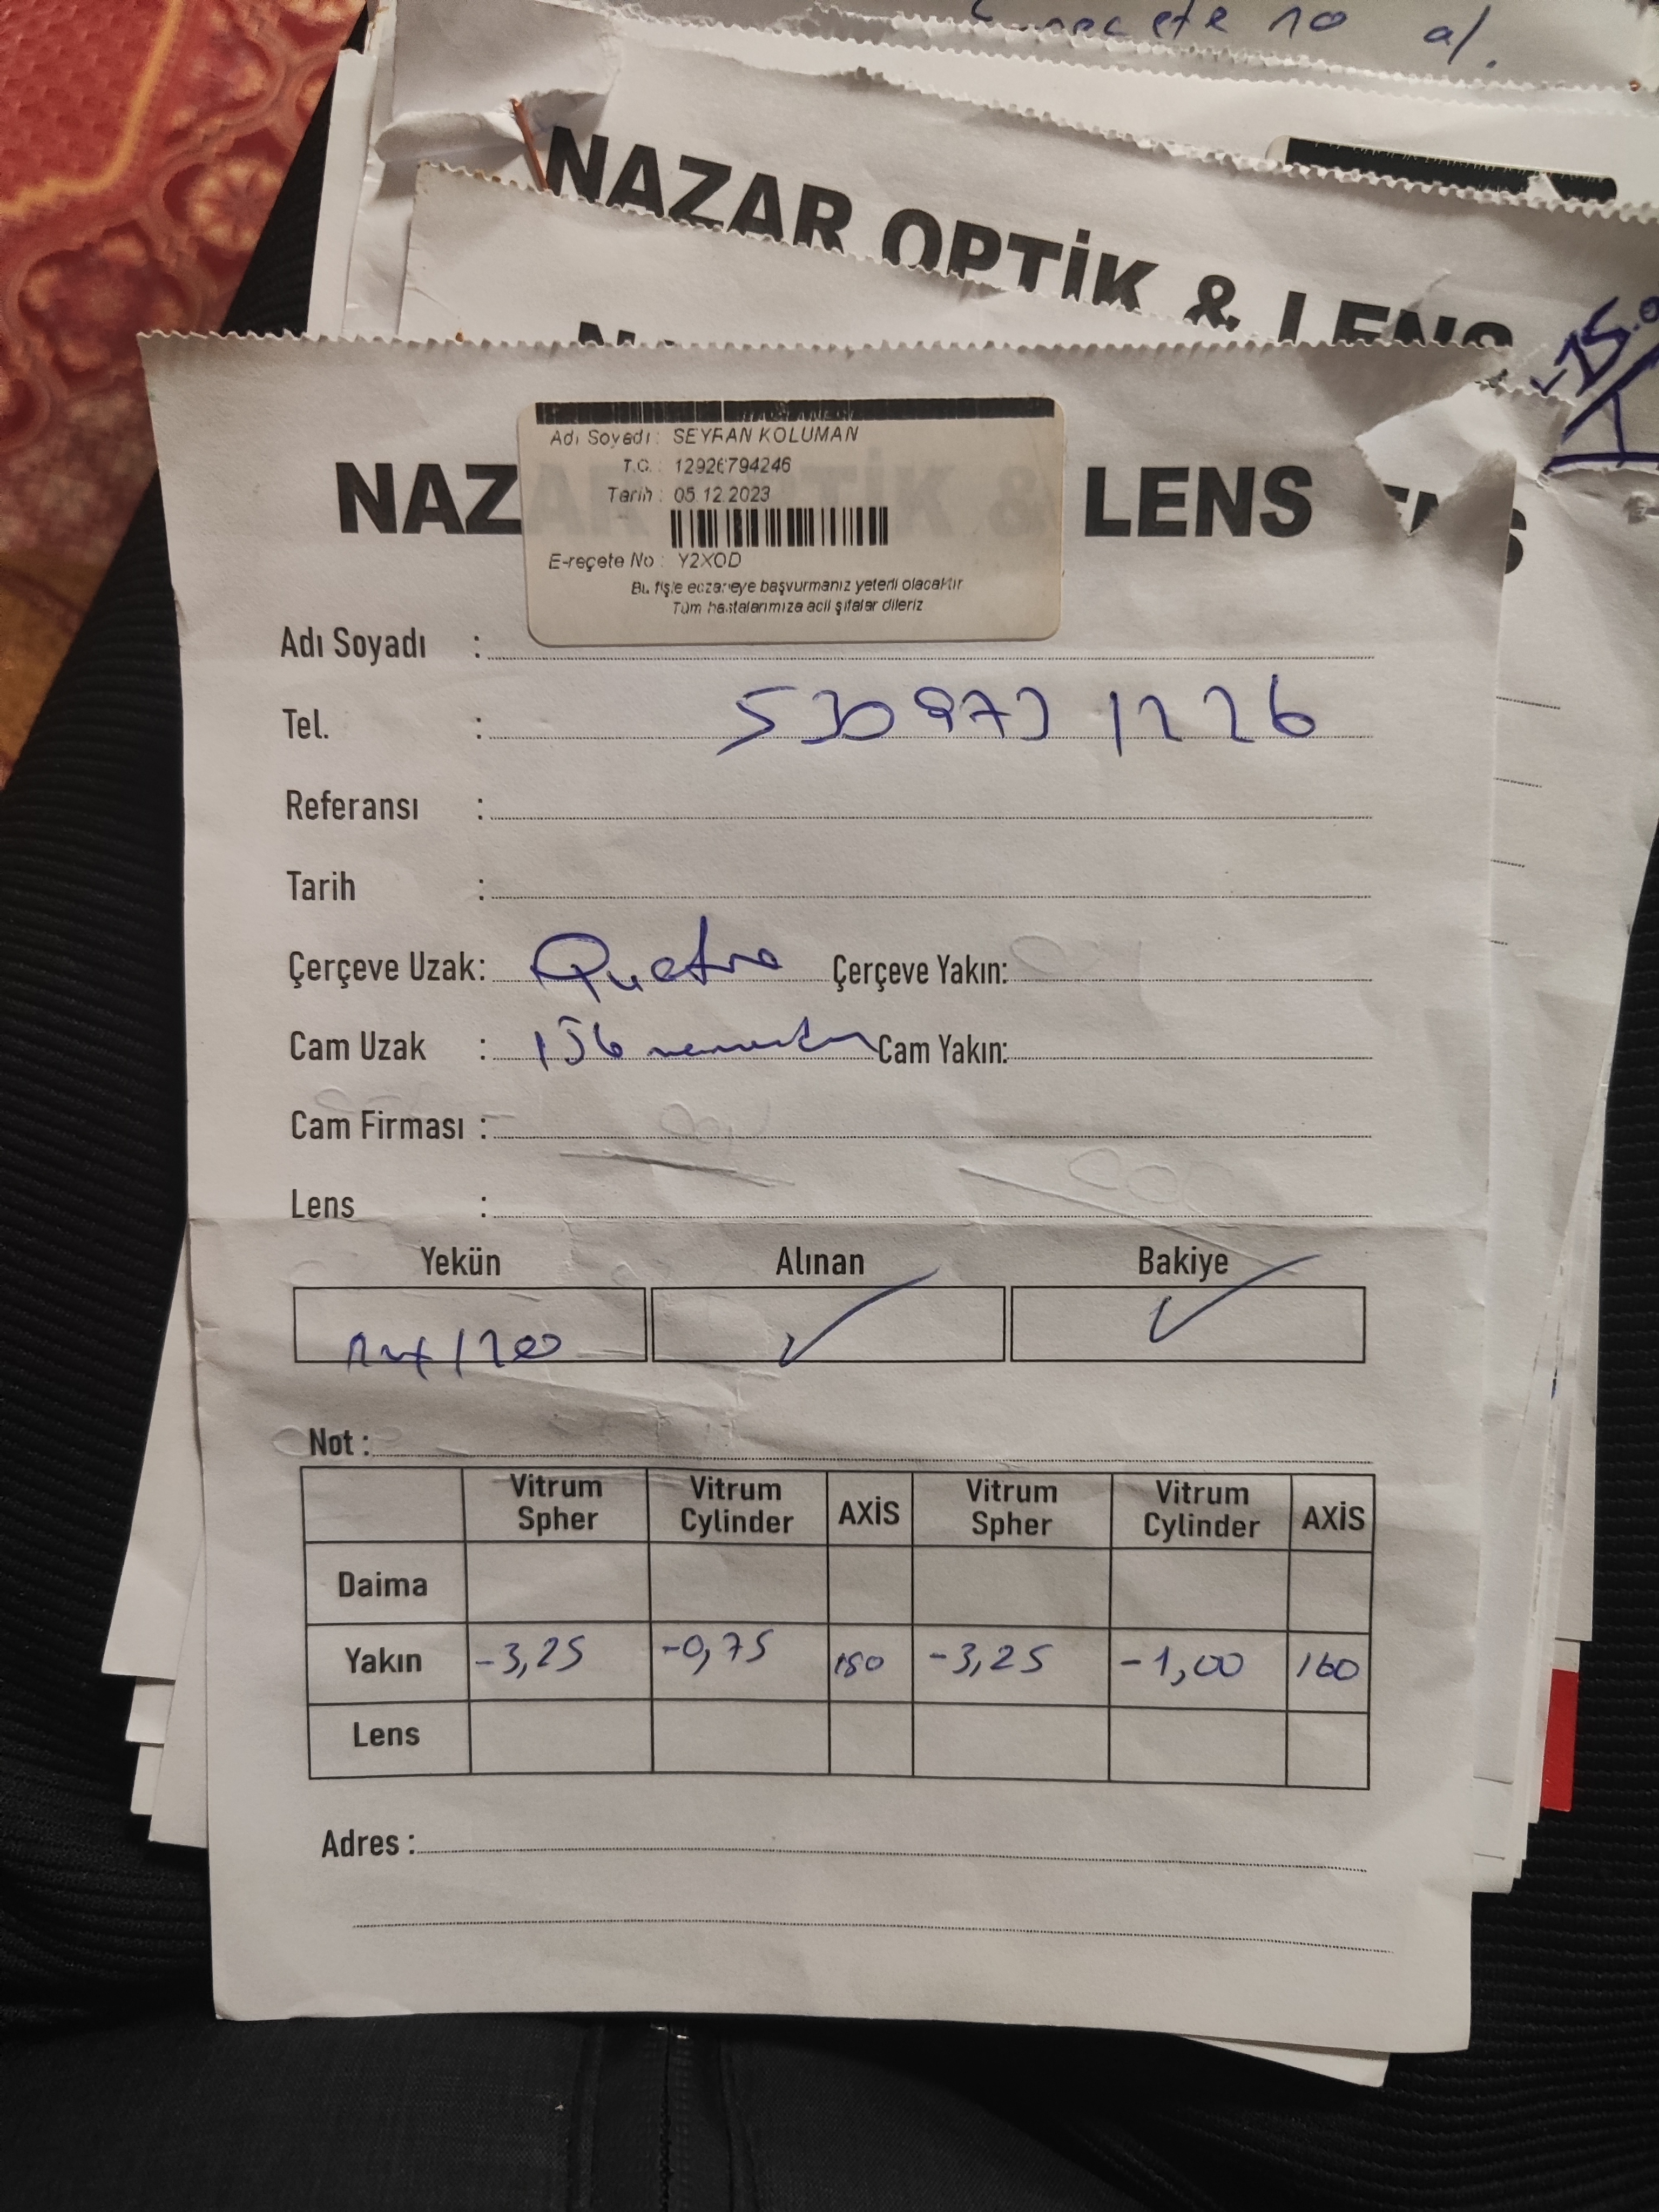 al.
NAZAR OPTİK & LENS
Adı Soyadı : SEYRAN KOLUMAN
T.C. : 12926794246
Tarih : 05.12.2023
NAZAR OPTİK & LENS
E-reçete No : Y2XOD
Bu fişle eczaneye başvurmanız yeterli olacaktır
Tüm hastalarımıza acil şifalar dileriz
Adı Soyadı :
Tel. : 530 973 1226
Referansı :
Tarih :
Çerçeve Uzak: Çerçeve Yakın:
Cam Uzak : 156 Cam Yakın:
Cam Firması :
Lens :
Yekün Alınan Bakiye
Not :
Vitrum Spher Vitrum Cylinder AXİS Vitrum Spher Vitrum Cylinder AXİS
Daima
Yakın -3,25 -0,75 180 -3,25 -1,00 160
Lens
Adres :